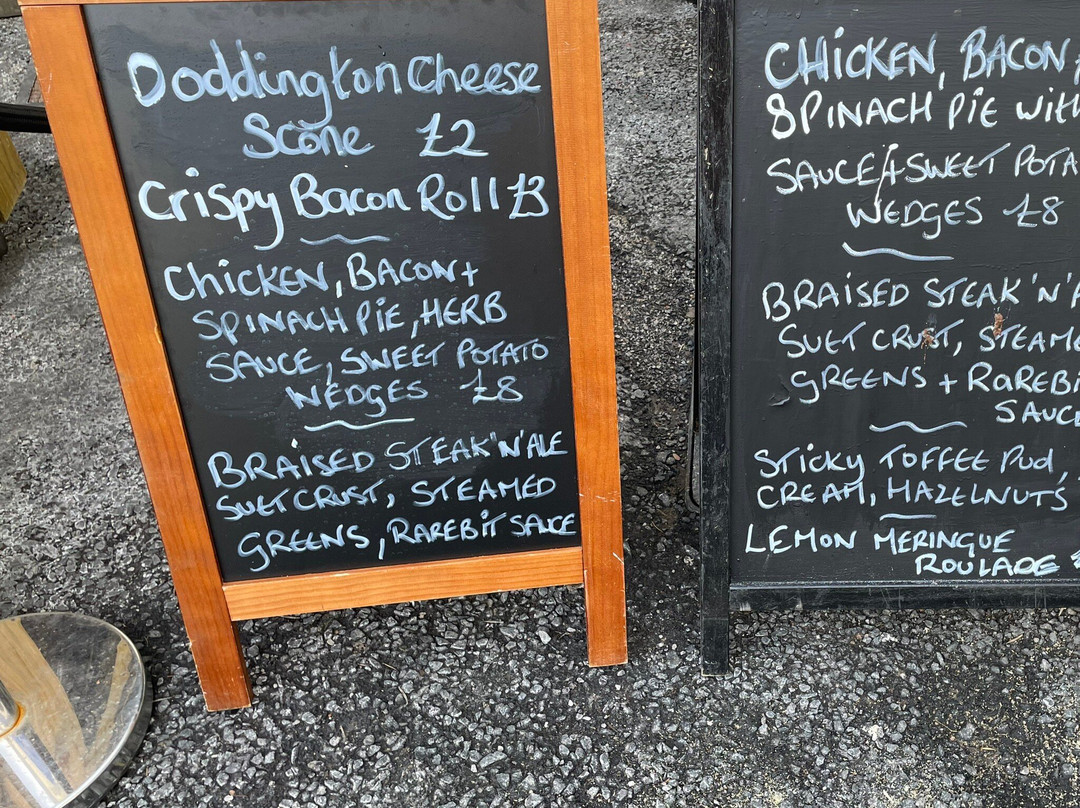 Doddington Cheese
Scone £2
Crispy Bacon Roll £3
CHICKEN, BACON +
SPINACH PIE, HERB
SAUCE, SWEET POTATO
WEDGES £8
BRAISED STEAK 'N' ALE
SUET CRUST, STEAMED
GREENS, RAREBIT SAUCE
CHICKEN, BACON,
SPINACH PIE WITH
SAUCE + SWEET POTA
WEDGES £8
BRAISED STEAK 'N' A
SUET CRUST, STEAME
GREENS + RAREBI
SAUCE
STICKY TOFFEE PUD,
CREAM, HAZELNUTS
LEMON MERINGUE
ROULADE